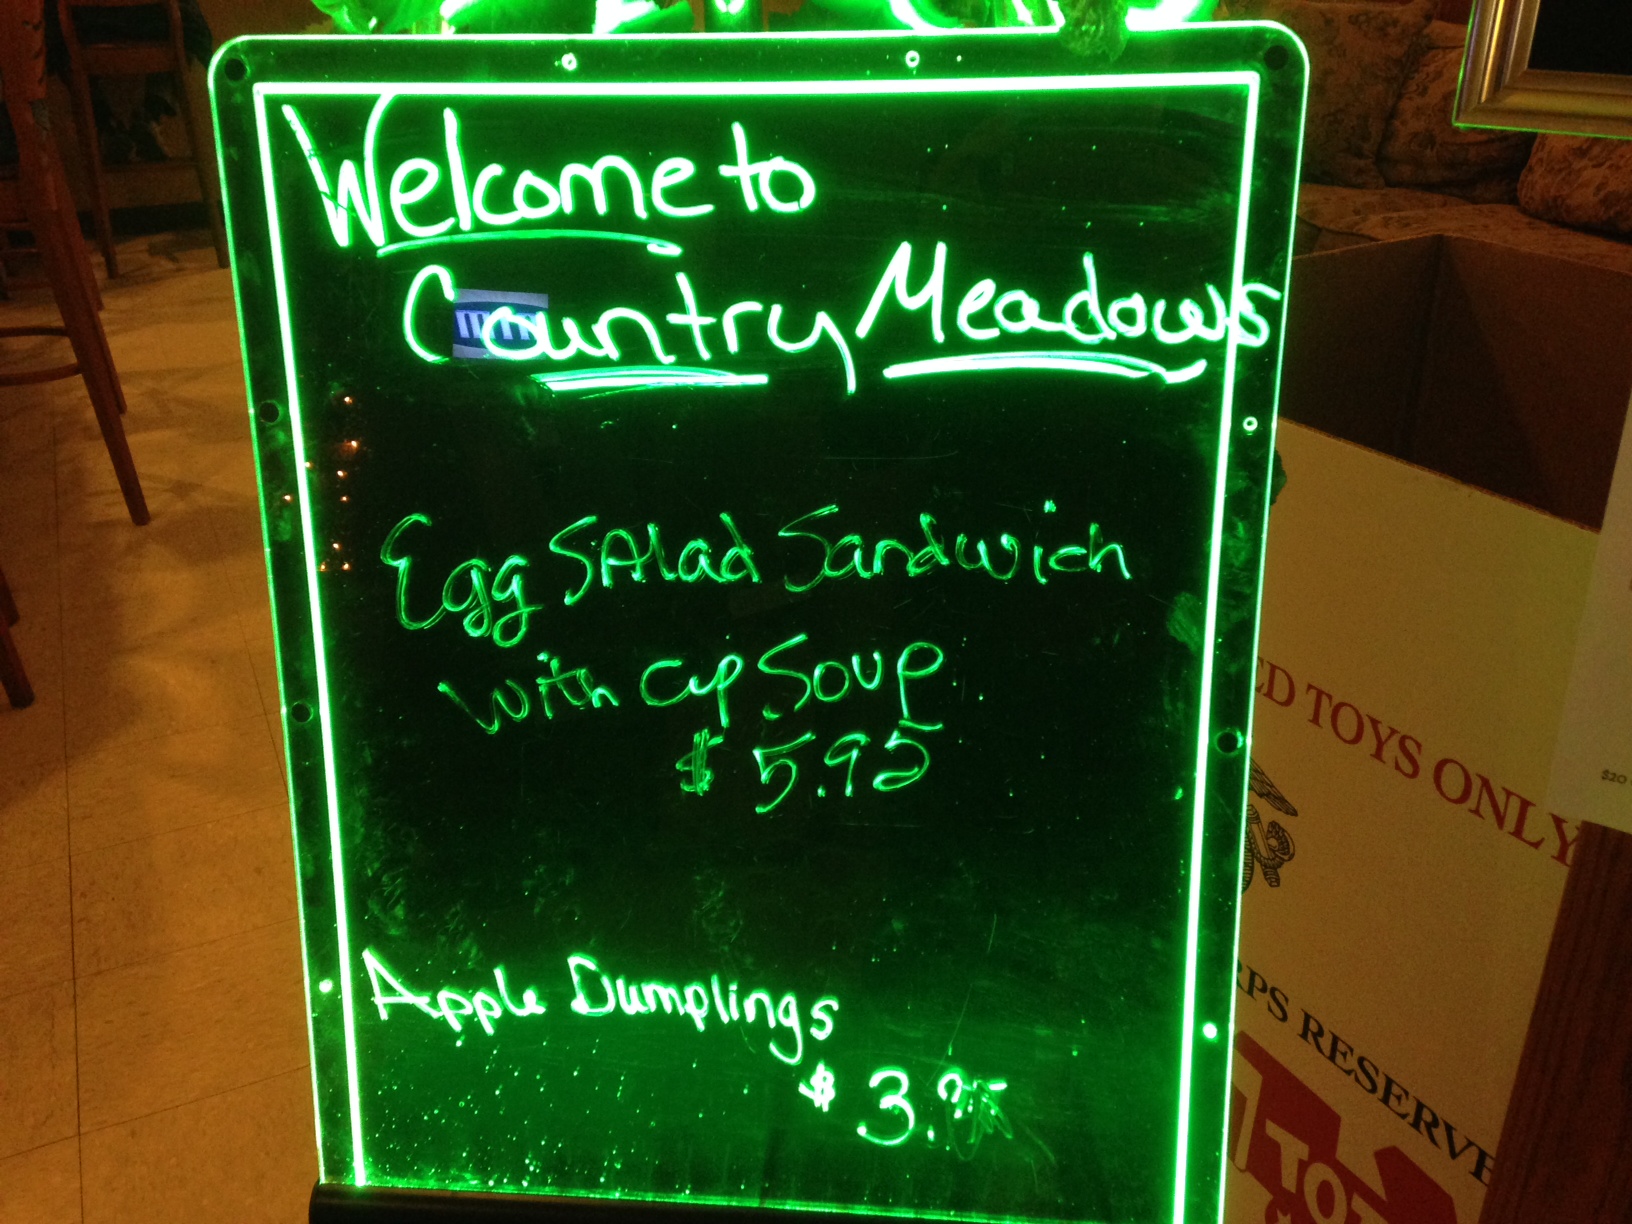 Welcome to
Country Meadows
Egg SAlad Sandwich
with cup Soup
$ 5.95
Apple Dumplings
$ 3.95
ED TOYS ONLY
RPS RESERVE
TO
$20